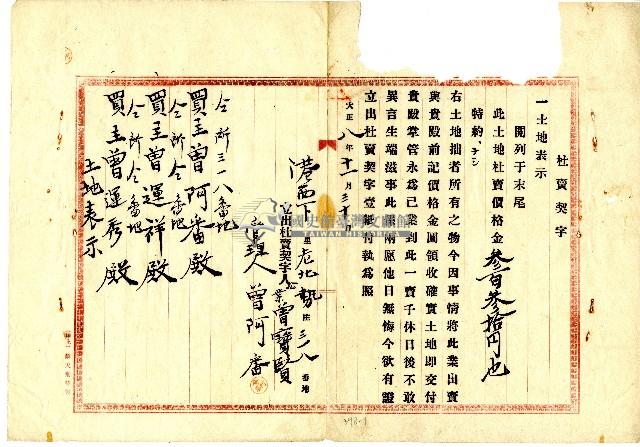 杜賣契字
一土地表示
開列于末尾
此土地杜賣價格金叁百叁拾円也
特約ナシ
右土地拙者所有之物今因事情將此業出賣
與貴殿前記價格金圓領收確實土地即交付
貴殿掌管永為己業到此一賣千休日後不敢
異言生端滋事此係兩愿他日無悔今欲有證
立出杜賣契字壹紙付執為照
大正八年十一月三十日
港西下里老北勢庄三一八番地
立出杜賣契字人 業 曾寶賢
管理人 曾阿番
仝所三一八番地
買主曾阿番殿
仝所仝番地
買主曾運祥殿
仝所仝番地
買主曾運秀殿
土地表示
國史館臺灣文獻館
TAIWAN HISTORICA